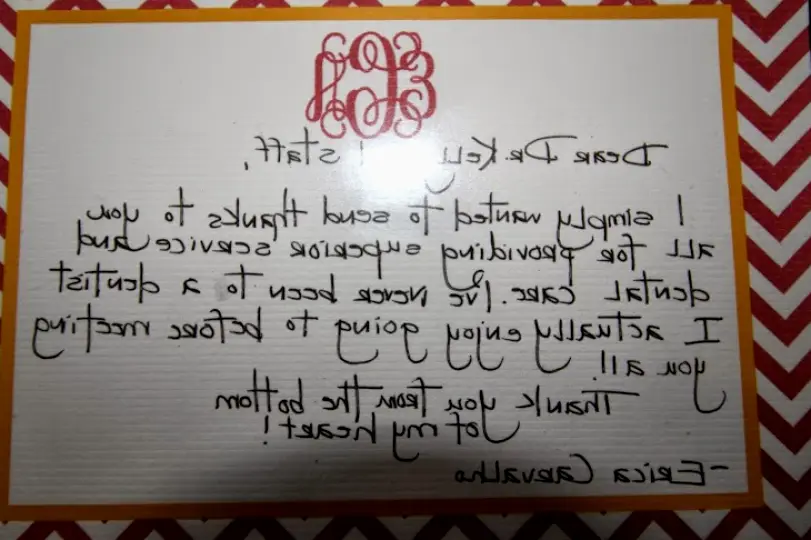 Dear Dr. Kelly staff,
I simply wanted to send thanks to you
all for providing superior service and
dental care. I've never been to a dentist
I actually enjoy going to before meeting
you all!
Thank you from the bottom
of my heart!
-Erica Carvalho